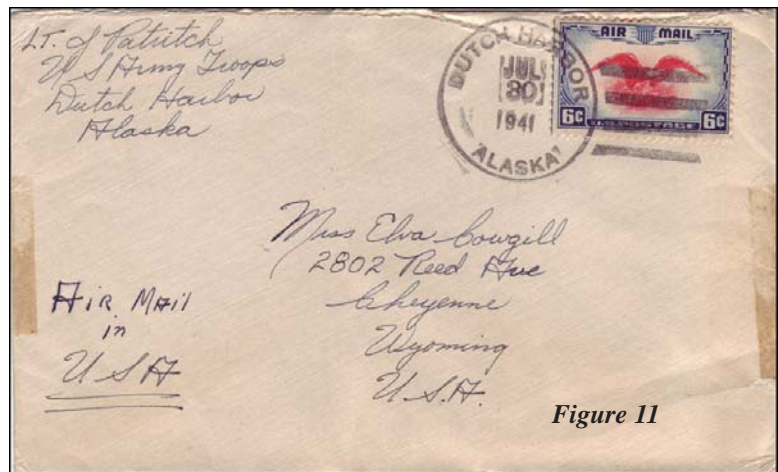 LT. J Patritch
U S Army Troops
Dutch Harbor
Alaska
DUTCH HARBOR
JUL
30
1941
ALASKA
AIR MAIL
6¢ U.S. POSTAGE 6¢
Miss Elva Cowgill
2802 Reed Ave
Cheyenne
Wyoming
U.S.A.
Air Mail
in
U S A
Figure 11